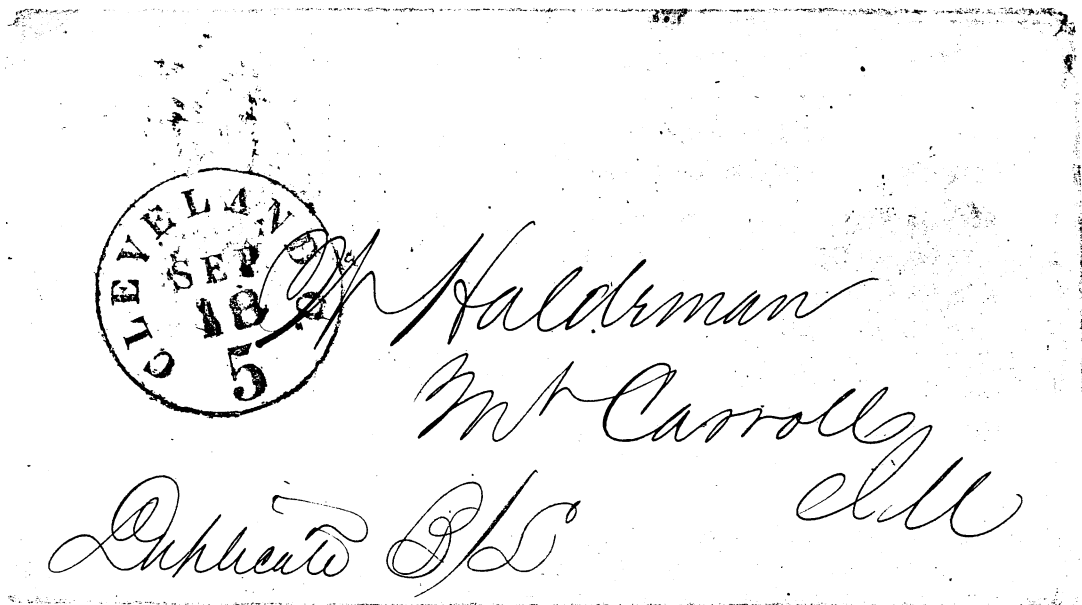 CLEVELAND O.
SEP
18
5
N Halderman
Mt Carroll
Ill
Duplicate B/L